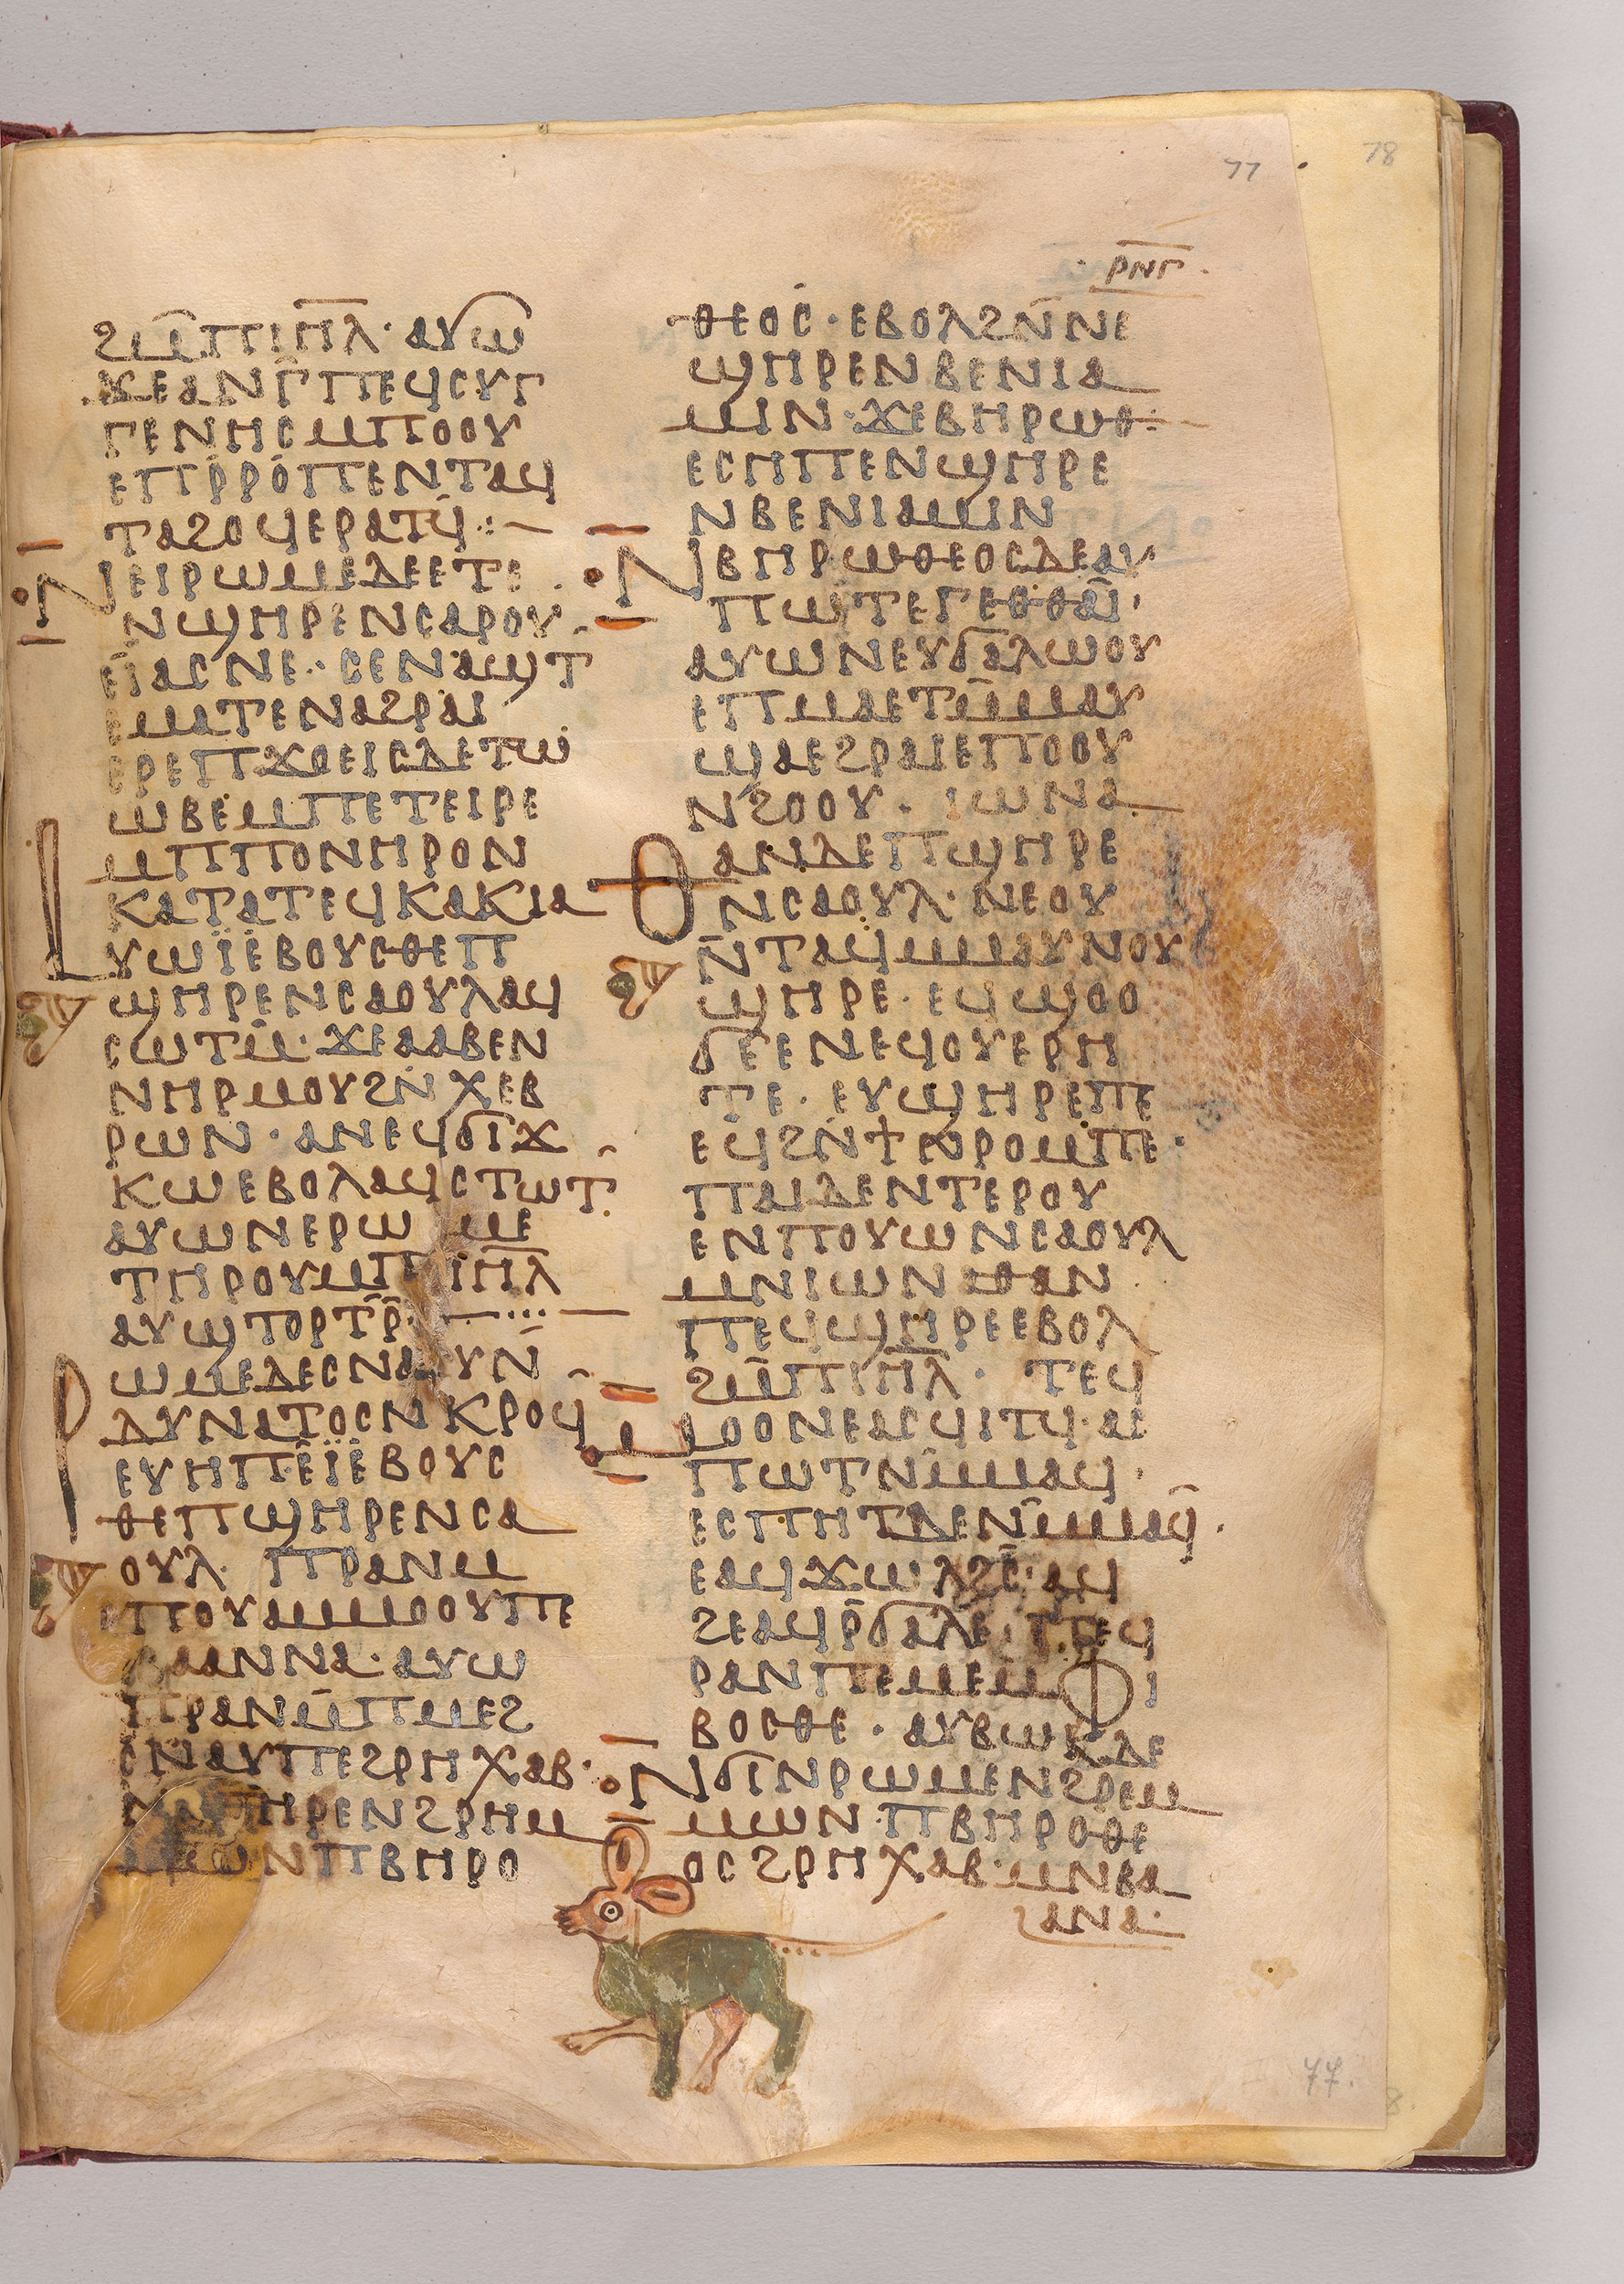 77
78
ⲣⲛⲅ
ϩⲙ̅ⲡⲓⲏ̅ⲗ · ⲁⲩⲱ
ϫⲉⲁⲛⲅ̅ⲡⲉϥⲥⲩⲅ
ⲅⲉⲛⲏⲥⲙⲡⲟⲟⲩ
ⲉⲡⲣ̅ⲣⲟ̇ⲡⲉⲛⲧⲁϥ
ⲧⲁϩⲟϥⲉⲣⲁⲧϥ̅ ·:—
ⲛⲉⲓⲣⲱⲙⲉⲇⲉⲉⲧⲉ
ⲛϣⲏⲣⲉⲛⲥⲁⲣⲟⲩ
ⲉⲓ̈ⲁⲥⲛⲉ · ⲥⲉⲛⲁϣⲧ
ⲉⲙⲁⲧⲉⲛⲁϩⲣⲁⲓ
ⲉⲣⲉⲡϫⲟⲉⲓⲥⲇⲉⲧⲱ
ⲱⲃⲉⲙⲡⲉⲧⲉⲓⲣⲉ
ⲙⲡⲡⲟⲛⲏⲣⲟⲛ
ⲕⲁⲧⲁⲧⲉϥⲕⲁⲕⲓⲁ
ⲁⲩⲱⲓ̈ⲉ̈ⲃⲟⲩⲥⲑⲉⲡ
ϣⲏⲣⲉⲛⲥⲁⲟⲩⲗⲁϥ
ⲥⲱⲧⲙ̅ · ϫⲉⲁⲁⲃⲉⲛ
ⲛⲏⲣⲙⲟⲩϩⲛ̅ⲭⲉⲃ
ⲣⲱⲛ · ⲁⲛⲉϥϭⲓϫ
ⲕⲱⲉⲃⲟⲗⲁϥⲥⲧⲱⲧ̅
ⲁⲩⲱⲛⲉⲣⲱⲙⲉ
ⲧⲏⲣⲟⲩⲙⲡⲓⲏ̅ⲗ
ⲁⲩϣⲧⲟⲣⲧⲣ̅ —···—
ⲣⲱⲙⲉⲇⲉⲥⲛⲁⲩⲛ̅
ⲇⲩⲛⲁⲧⲟⲥⲛⲕⲣⲟϥ̅
ⲉⲩⲏⲡⲉⲓ̈ⲉ̈ⲃⲟⲩⲥ
ⲑⲉⲡϣⲏⲣⲉⲛⲥⲁ
ⲟⲩⲗ · ⲡⲣⲁⲛⲙ
ⲡⲟⲩⲁⲙⲙⲟⲟⲩⲡⲉ
ⲃⲁⲁⲛⲛⲁ · ⲁⲩⲱ
ⲡⲣⲁⲛⲙ̅ⲡⲙⲉϩ
ⲥⲛⲁⲩⲡⲉϩⲣⲏⲭⲁⲃ ·
ⲛϣⲏⲣⲉⲛϩⲣⲏⲙ
ⲙⲱⲛⲡⲃⲏⲣⲟ
ⲑⲉⲟⲥ̇ · ⲉⲃⲟⲗϩⲛ̅ⲛⲉ
ϣⲏⲣⲉⲛⲃⲉⲛⲓⲁ
ⲙⲓⲛ · ϫⲉⲃⲏⲣⲱⲑ :
ⲉⲥⲏⲡⲉⲛϣⲏⲣⲉ
ⲛⲃⲉⲛⲓⲁⲙⲓⲛ
ⲛⲃⲏⲣⲱⲑⲉⲟⲥⲇⲉⲁⲩ
ⲡⲱⲧⲉⲅⲉⲑⲑⲁⲓ̈ ·
ⲁⲩⲱⲛⲉⲩϭⲁⲗⲱⲟⲩ
ⲉⲡⲙⲁⲉⲧⲙ̅ⲙⲁⲩ
ϣⲁⲉϩⲣⲁⲓⲉⲡⲟⲟⲩ
ⲛϩⲟⲟⲩ · ⲓⲱⲛⲁ
ⲑⲁⲛⲇⲉⲡϣⲏⲣⲉ
ⲛⲥⲁⲟⲩⲗ · ⲛⲉⲟⲩ
ⲛ̅ⲧⲁϥⲙⲙⲁⲩⲛⲟⲩ
ϣⲏⲣⲉ · ⲉϥϣⲟⲟ
ϭⲉⲉⲛⲉϥⲟⲩⲉⲣⲏ
ⲧⲉ · ⲉⲩϣⲏⲣⲉⲡⲉ
ⲉϥϩⲛ̅ϯⲛⲣⲟⲙⲡⲉ ·
ⲡⲁⲓⲇⲉⲛⲧⲉⲣⲟⲩ
ⲉⲛⲡⲟⲩⲱⲛⲥⲁⲟⲩⲗ
ⲙⲛⲓⲱⲛⲁⲑⲁⲛ
ⲡⲉϥϣⲏⲣⲉⲉⲃⲟⲗ
ϩⲙ̅ⲡⲓⲏ̅ⲗ · ⲧⲉϥ
ⲙⲟⲟⲛⲉⲁⲥϥⲓⲧϥ · ⲁⲥ
ⲡⲱⲧⲛⲙ̅ⲙⲁϥ ·
ⲉⲥⲡⲏⲧⲇⲉⲛⲙ̅ⲙⲁϥ̅ ·
ⲉⲁϥϫⲱⲗϩ̅ⲥ̅ · ⲁϥ
ϩⲉⲁϥⲣ̅ϭⲁⲗⲉ · ⲡⲉϥ
ⲣⲁⲛⲡⲉⲙⲉⲙⲫⲓ
ⲃⲟⲥⲑⲉ · ⲁⲩⲃⲱⲕⲇⲉ
ⲛϭⲓⲛⲣⲱⲙⲉⲛϩⲣⲉⲙ
ⲙⲱⲛ · ⲡⲃⲏⲣⲟⲑⲉ
ⲟⲥϩⲣⲏⲭⲁⲃ · ⲙⲛⲃⲁ
ⲁⲛⲁ ·
77.